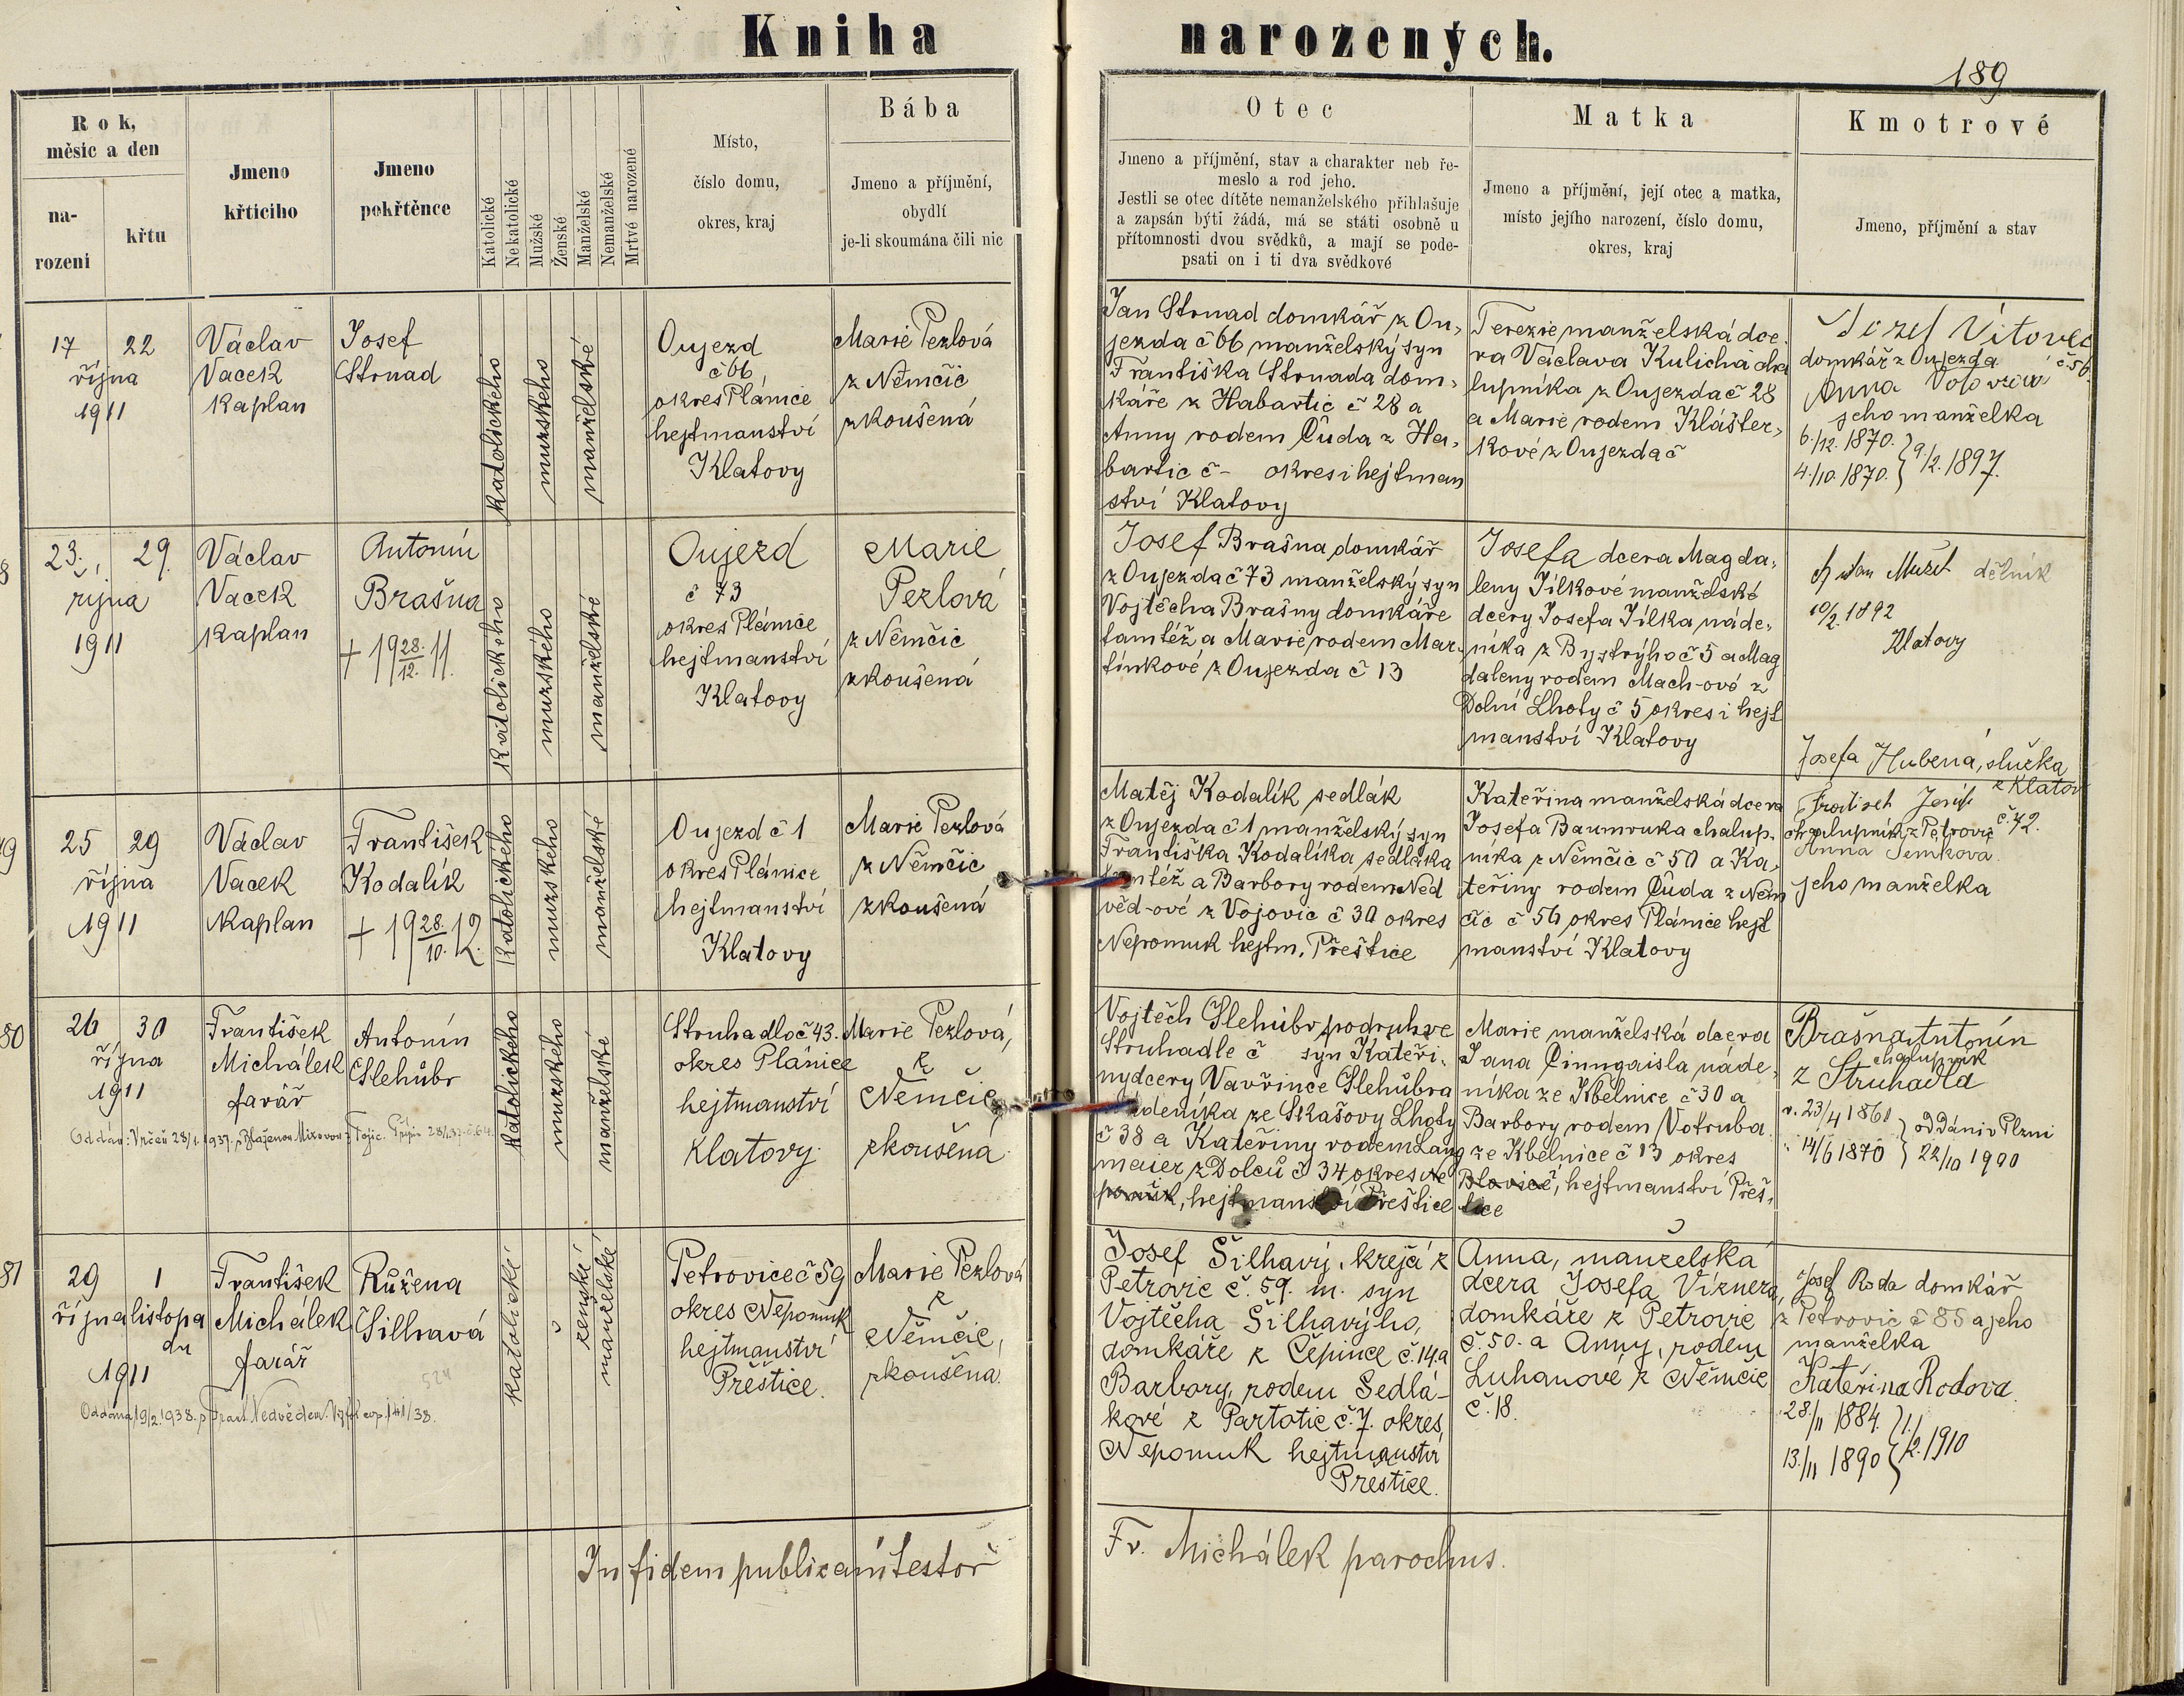 Kniha narozených.
189
Rok,
měsic a den
na-
rozeni
křtu
Jmeno
křticiho
Jmeno
pokřtěnce
Katolické
Nekatolické
Mužské
Ženské
Manželské
Nemanželské
Mrtvé narozené
Místo,
číslo domu,
okres, kraj
Bába
Jmeno a příjmění,
obydlí
je-li skoumána čili nic
Otec
Jmeno a příjmění, stav a charakter neb ře-
meslo a rod jeho.
Jestli se otec dítěte nemanželského přihlašuje
a zapsán býti žádá, má se státi osobně u
přítomnosti dvou svědků, a mají se pode-
psati on i ti dva svědkové
Matka
Jmeno a příjmění, její otec a matka,
místo jejího narození, číslo domu,
okres, kraj
Kmotrové
Jmeno, příjmění a stav
17 22
října
1911
Václav
Vacek
kaplan
Josef
Strnad
katolického
mužského
manželské
Oujezd
č 66
okres Plánice
hejtmanství
Klatovy
Marie Pezlová
z Němčic
zkoušená
Jan Strnad domkář z Ou,
jezda č 66 manželský syn
Františka Strnada dom,
káře z Habartic č 28 a
Anny rodem Čuda z Ha,
bartic č - okres i hejtman
ství Klatovy
Terezie manželská dce,
ra Václava Kulicha cha
lupníka z Oujezda č 28
a Marie rodem Klášter,
kové z Oujezda č
Josef Vítovec
domkář z Oujezda č 56
Anna
jeho manželka
6./12. 1870.
4./10. 1870. } 9./2. 1897.
8
23. 29.
října
1911
Václav
Vacek
kaplan
Antonín
Brašna
+ 19 28./12. 11.
katolického
mužského
manželské
Oujezd
č 73
okres Plánice
hejtmanství
Klatovy
Marie
Pezlová
z Němčic
zkoušená
Josef Brašna domkář
z Oujezda č 73 manželský syn
Vojtěcha Brašny domkáře
tamtéž a Marie rodem Mar.
tínkové z Oujezda č 13
Josefa dcera Magda,
leny Jílkové manželské
dcery Josefa Jílka náde,
níka z Bystrýho č 5 a Mag
daleny rodem Mach-ové z
Dolní Lhoty č 5 okres i hejt
manství Klatovy
dělník
10/2. 1892
Klatovy
Josefa Hubená, služka
z Klatov
79
25 29
října
1911
Václav
Vacek
kaplan
František
Kodalík
+ 19 28./10. 12.
katolického
mužského
manželské
Oujezd č 1
okres Plánice
hejtmanství
Klatovy
Marie Pezlová
z Němčic
zkoušená
Matěj Kodalík sedlák
z Oujezda č 1 manželský syn
Františka Kodalíka, sedláka
tamtéž a Barbory rodem Ned
věd-ové z Vojovic č 30 okres
Nepomuk hejtm. Přeštice
Kateřina manželská dcera
Josefa Baumruka chalup.
níka z Němčic č 50 a Ka,
teřiny rodem Čuda z Něm
čic č 56 okres Plánice hejt
manství Klatovy
chalupník z Petrovic č. 72.
Anna
jeho manželka
80
26 30
října
1911
František
Michálek
farář
Antonín
Šlehůbr
katolického
mužského
manželské
Struhadlo č 43.
okres Plánice
hejtmanství
Klatovy
Marie Pezlová,
z
Němčic
zkoušená
Vojtěch Šlehůbr podruh ze
Struhadle č syn Kateři,
ny dcery Vavřince Šlehůbra
nádeníka ze Skašovy Lhoty
č 38 a Kateřiny rodem Lang
maier z Dolců č 34 okres Ne
pomuk, hejtmanství Přeštice
Marie manželská dcera
Jana Činngaisla náde,
níka ze Kbelnice č 30 a
Barbory rodem Votruba
ze Kbelnice č 13 okres
Blovice, hejtmanství Přeš,
tice
Brašna Antonín
chalupník
z Struhadla
n. 23/4 1860
14/6 1870 } oddáni v Plzni
22/10 1900
81
29 1
října listopa
du
1911
František
Michálek
farář
Růžena
Šilhavá
524
katolické
ženské
manželské
Petrovice č 59
okres Nepomuk
hejtmanství
Přeštice.
Marie Pezlová
z
Němčic,
zkoušena.
Oddána 19/2. 1938. s Frant. Nedvědem.
Josef Šilhavý, krejčí z
Petrovic č. 59. m. syn
Vojtěcha Šilhavýho,
domkáře z Čepince č. 14 a
Barbory, rodem Sedlá-
kové z Partotic č. 7. okres,
Nepomuk hejtmanství
Přeštice.
Anna, manželská
dcera Josefa Víznera,
domkáře z Petrovic
č. 50. a Anny, rodem
Luhanové z Němčic
č. 18.
Josef Roda domkář
z Petrovic č 85 a jeho
manželka
Kateřina Rodova.
28./11 1884.
13./11 1890 } 1./2. 1910
In fidem publicam testor
Fr. Michálek parochus.